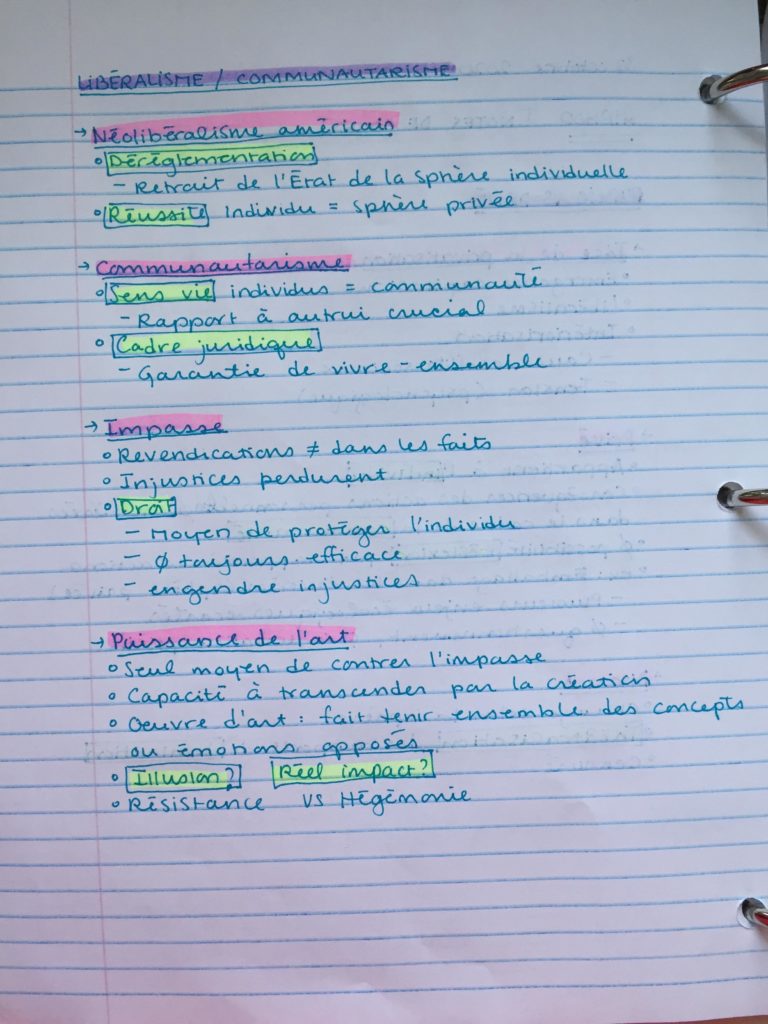 LIBÉRALISME / COMMUNAUTARISME
→ Néolibéralisme américain
° Déréglementation
- Retrait de l'État de la sphère individuelle
° Réussite individu = sphère privée
→ Communautarisme
° Sens vie individus = communauté
- Rapport à autrui crucial
° Cadre juridique
- Garantie de vivre-ensemble
→ Impasse
° Revendications ≠ dans les faits
° Injustices perdurent
° Droit
- Moyen de protéger l'individu
- Ø toujours efficace
- engendre injustices
→ Puissance de l'art
° Seul moyen de contrer l'impasse
° Capacité à transcender par la création
° Oeuvre d'art : fait tenir ensemble des concepts
ou émotions opposés
° Illusion? Réel impact?
° Résistance vs Hégémonie